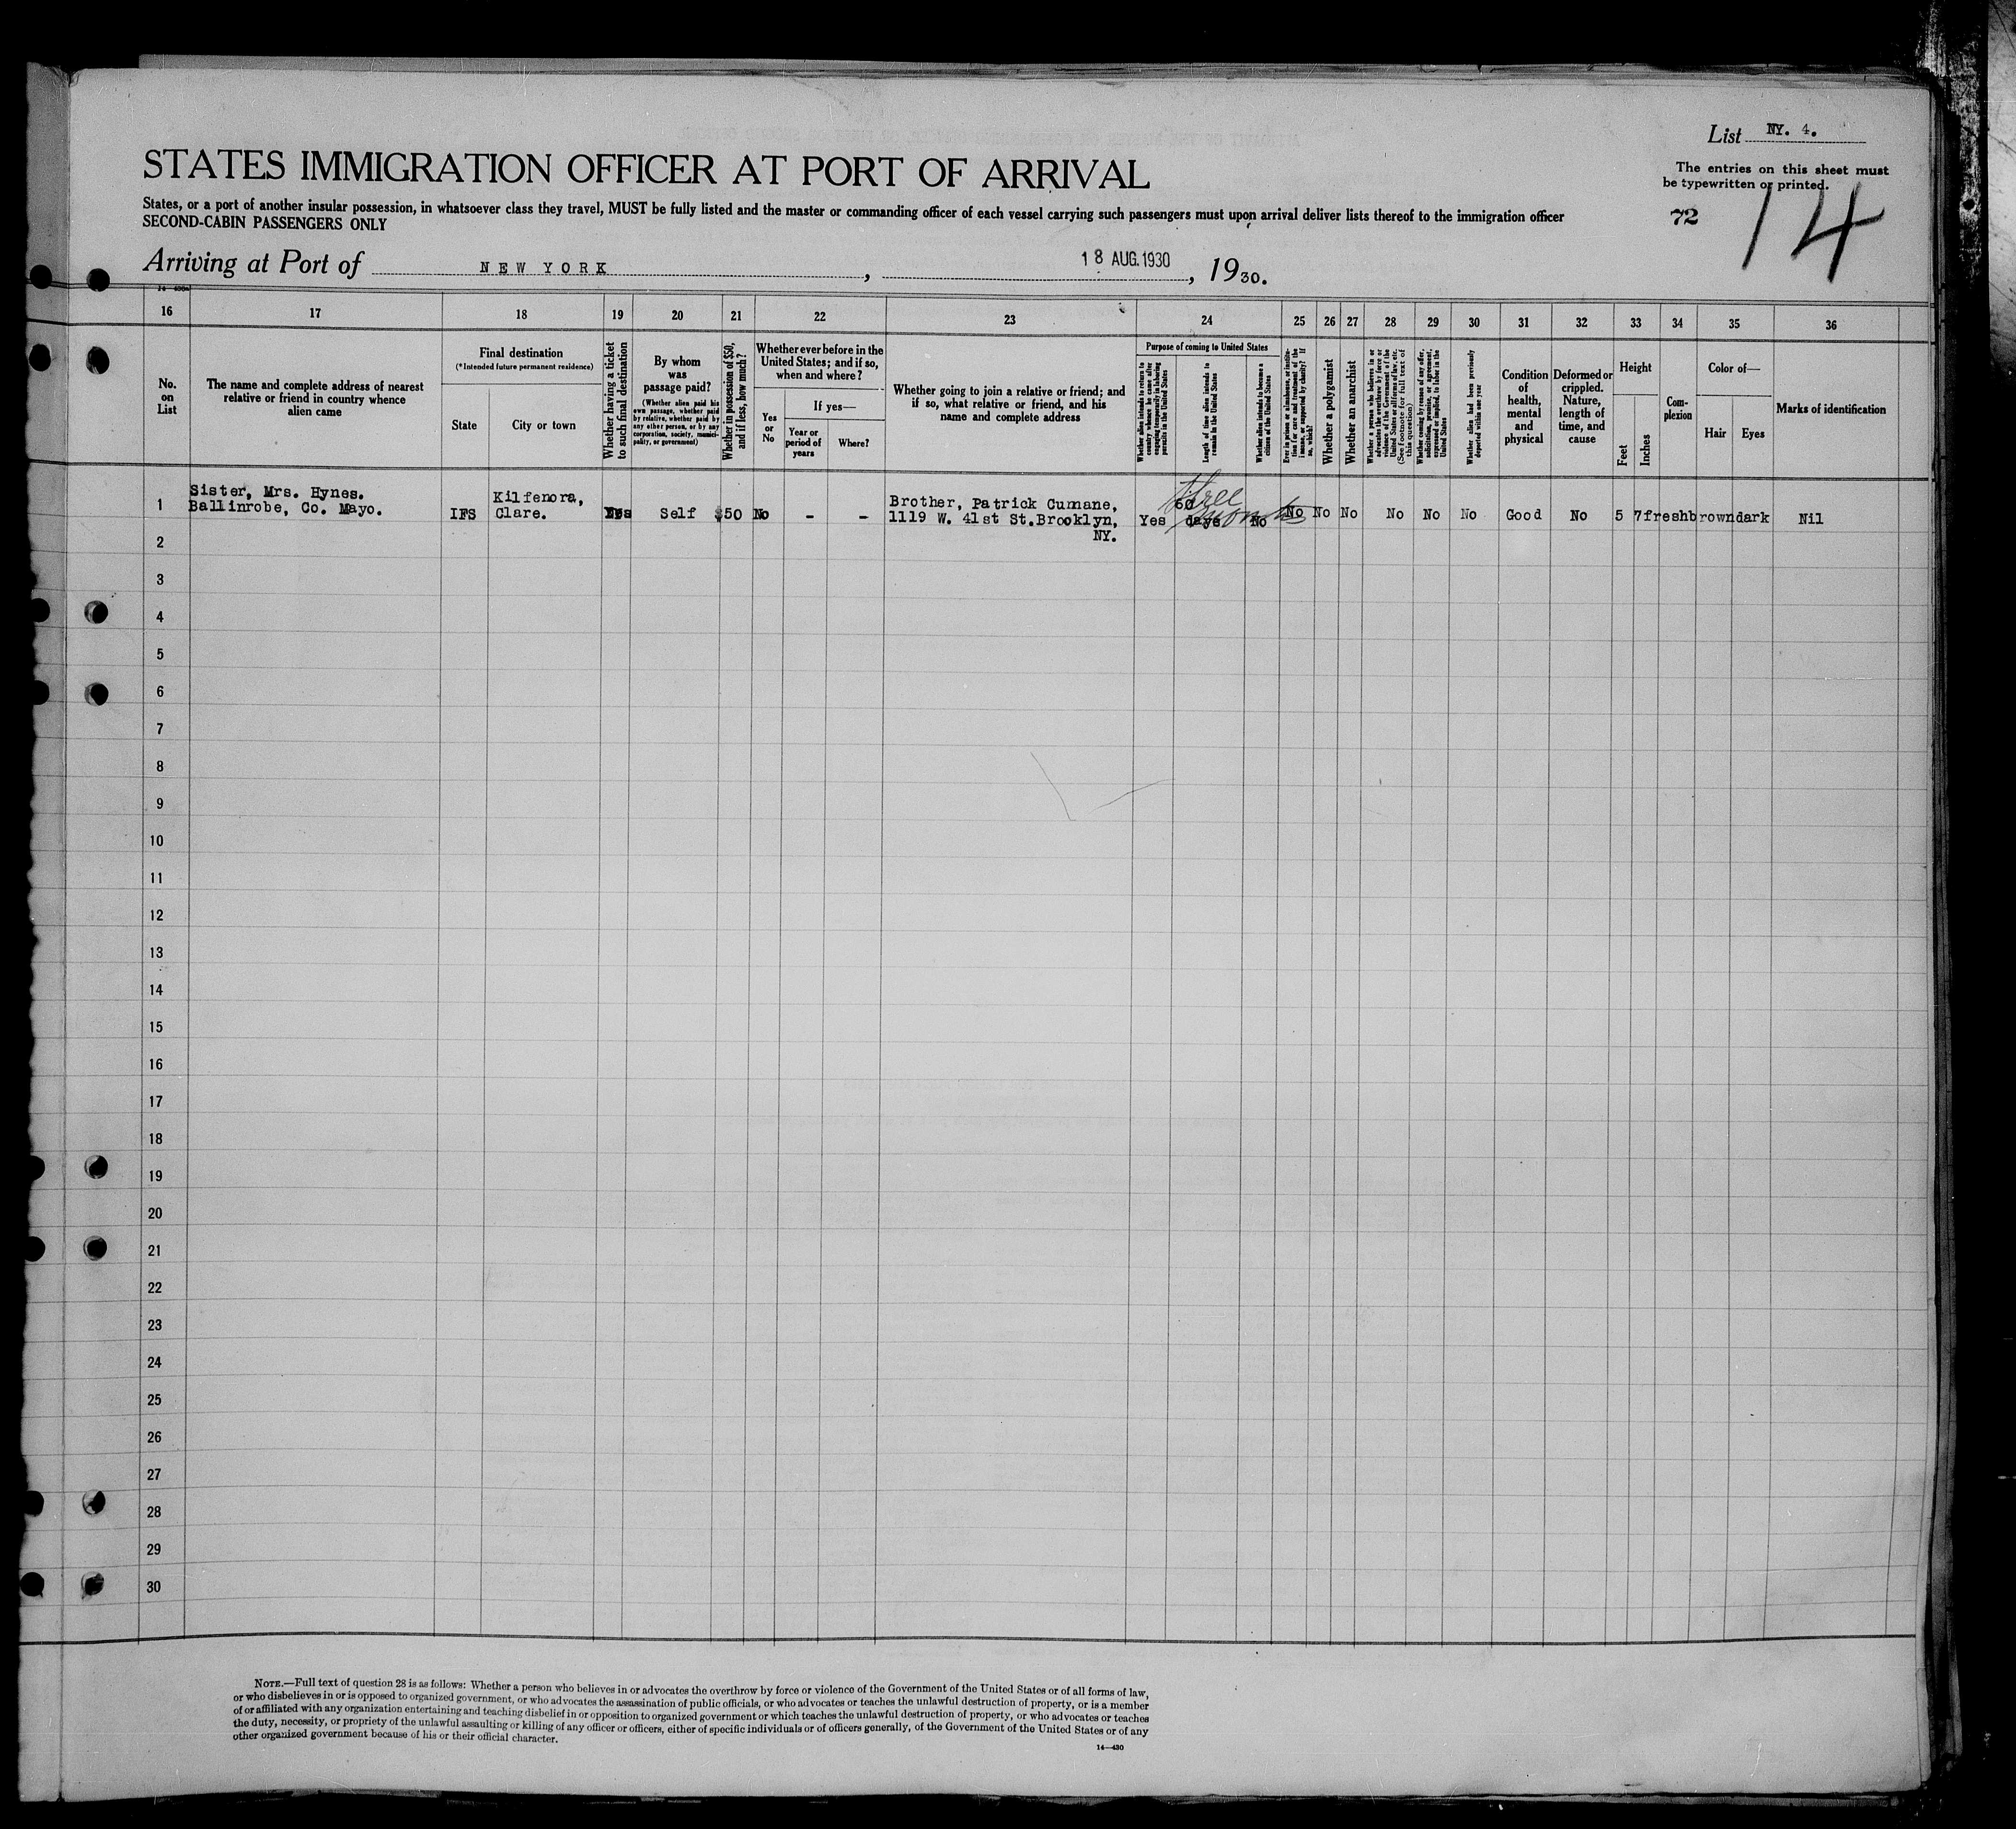 List NY. 4.
The entries on this sheet must
be typewritten or printed.
STATES IMMIGRATION OFFICER AT PORT OF ARRIVAL
72
14
States, or a port of another insular possession, in whatsoever class they travel, MUST be fully listed and the master or commanding officer of each vessel carrying such passengers must upon arrival deliver lists thereof to the immigration officer
SECOND-CABIN PASSENGERS ONLY
Arriving at Port of NEW YORK, 18 AUG. 1930, 1930.
16 17 18 19 20 21 22 23 24 25 26 27 28 29 30 31 32 33 34 35 36
No.
on
List
The name and complete address of nearest
relative or friend in country whence
alien came
Final destination
(*Intended future permanent residence)
State
City or town
Whether having a ticket
to such final destination
By whom
was
passage paid?
(Whether alien paid his
own passage, whether paid
by relative, whether paid by
any other person, or by any
corporation, society, munici-
pality, or government)
Whether in possession of $50,
and if less, how much?
Whether ever before in the
United States; and if so,
when and where?
Yes
or
No
If yes—
Year or
period of
years
Where?
Whether going to join a relative or friend; and
if so, what relative or friend, and his
name and complete address
Purpose of coming to United States
Whether alien intends to return to
country whence he came after
engaging temporarily in laboring
pursuits in the United States
Length of time alien intends to
remain in the United States
Whether alien intends to become a
citizen of the United States
Ever in prison or almshouse, or institu-
tion for care and treatment of the
insane, or supported by charity? If
so, which?
Whether a polygamist
Whether an anarchist
Whether a person who believes in or
advocates the overthrow by force or
violence of the Government of the
United States or all forms of law, etc.
(See footnote for full text of
this question)
Whether coming by reason of any offer,
solicitation, promise, or agreement,
expressed or implied, to labor in the
United States
Whether alien had been previously
deported within one year
Condition
of
health,
mental
and
physical
Deformed or
crippled.
Nature,
length of
time, and
cause
Height
Feet
Inches
Com-
plexion
Color of—
Hair
Eyes
Marks of identification
1
Sister, Mrs. Hynes.
Ballinrobe, Co. Mayo.
IFS
Kilfenora,
Clare.
Yes
Self
$50
No
-
-
Brother, Patrick Cumane,
1119 W. 41st St.Brooklyn,
NY.
Yes
60
days
Three
months
No
No
No
No
No
No
No
Good
No
5
7
fresh
brown
dark
Nil
2
3
4
5
6
7
8
9
10
11
12
13
14
15
16
17
18
19
20
21
22
23
24
25
26
27
28
29
30
NOTE.—Full text of question 28 is as follows: Whether a person who believes in or advocates the overthrow by force or violence of the Government of the United States or of all forms of law,
or who disbelieves in or is opposed to organized government, or who advocates the assassination of public officials, or who advocates or teaches the unlawful destruction of property, or is a member
of or affiliated with any organization entertaining and teaching disbelief in or opposition to organized government or which teaches the unlawful destruction of property, or who advocates or teaches
the duty, necessity, or propriety of the unlawful assaulting or killing of any officer or officers, either of specific individuals or of officers generally, of the Government of the United States or of any
other organized government because of his or their official character.
14—430